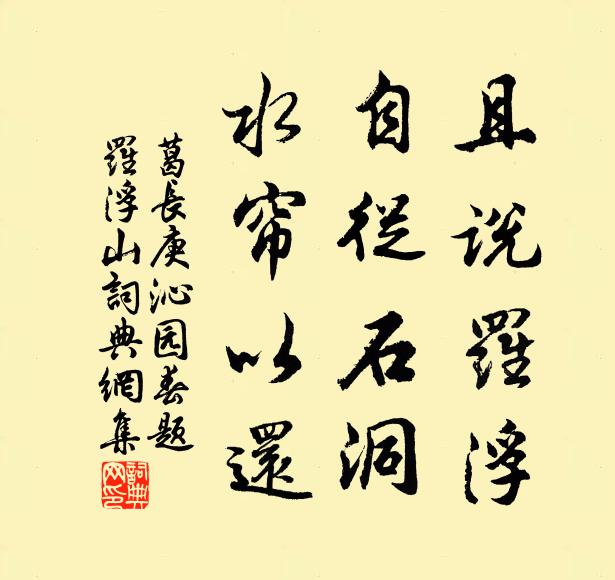 且说羅浮
自從石洞
水帘以還
葛長庚沁园春题
羅浮山詞典網集
詞典網印